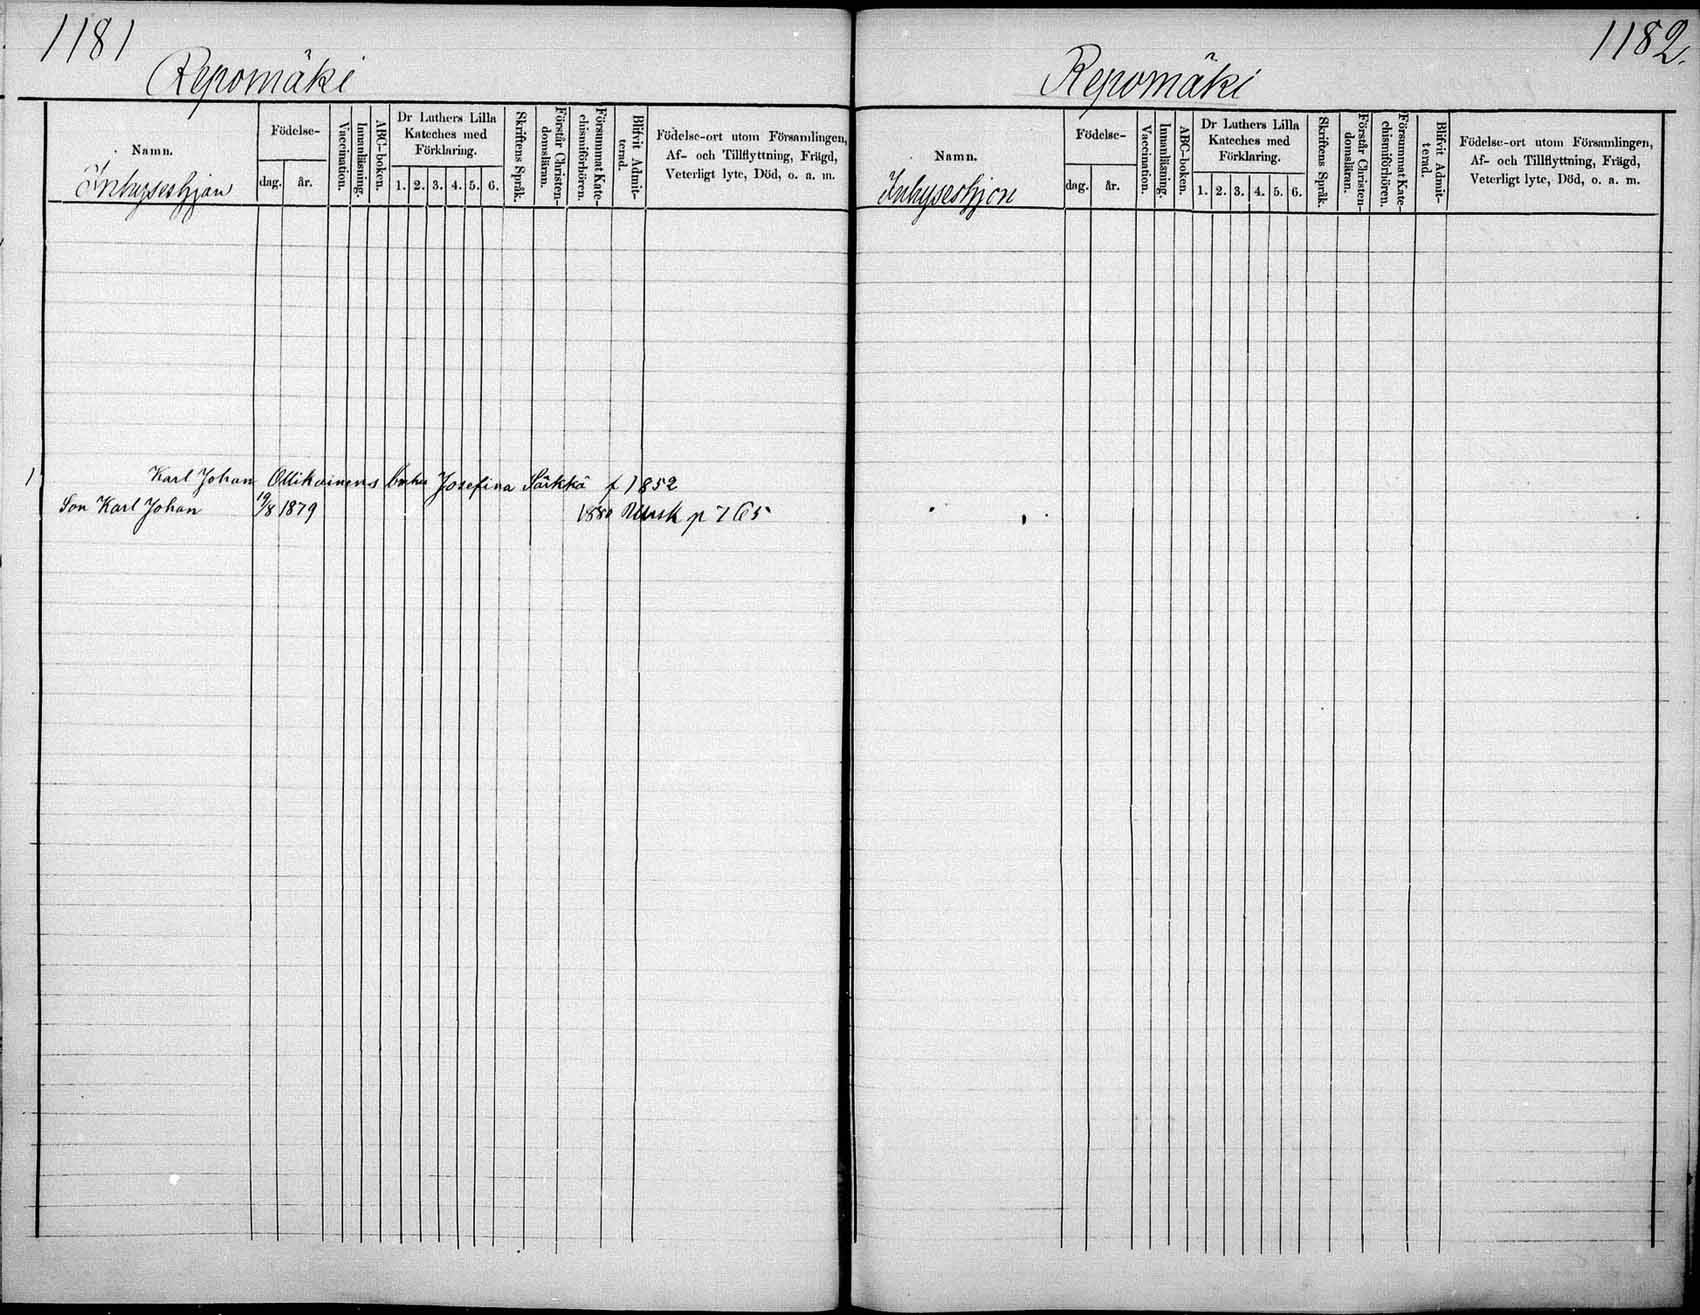 1181
Repomäki
Namn.
Inhyseshjon
Födelse-
dag.
år.
Vaccination.
Innanläsning.
ABC-boken.
Dr Luthers Lilla
Kateches med
Förklaring.
1. 2. 3. 4. 5. 6.
Skriftens Språk.
Förstår Christen-
domsläran.
Försummat Kate-
chismiförhören.
Blifvit Admit-
terad.
Födelse-ort utom Församlingen,
Af- och Tillflyttning, Frägd,
Veterligt lyte, Död, o. a. m.
1 Karl Johan Ollikainens Josefina Särkkä f 1852
Son Karl Johan 19/8 1879 1880 p 765
1182.
Repomäki
Namn.
Inhyseshjon
Födelse-
dag.
år.
Vaccination.
Innanläsning.
ABC-boken.
Dr Luthers Lilla
Kateches med
Förklaring.
1. 2. 3. 4. 5. 6.
Skriftens Språk.
Förstår Christen-
domsläran.
Försummat Kate-
chismiförhören.
Blifvit Admit-
terad.
Födelse-ort utom Församlingen,
Af- och Tillflyttning, Frägd,
Veterligt lyte, Död, o. a. m.